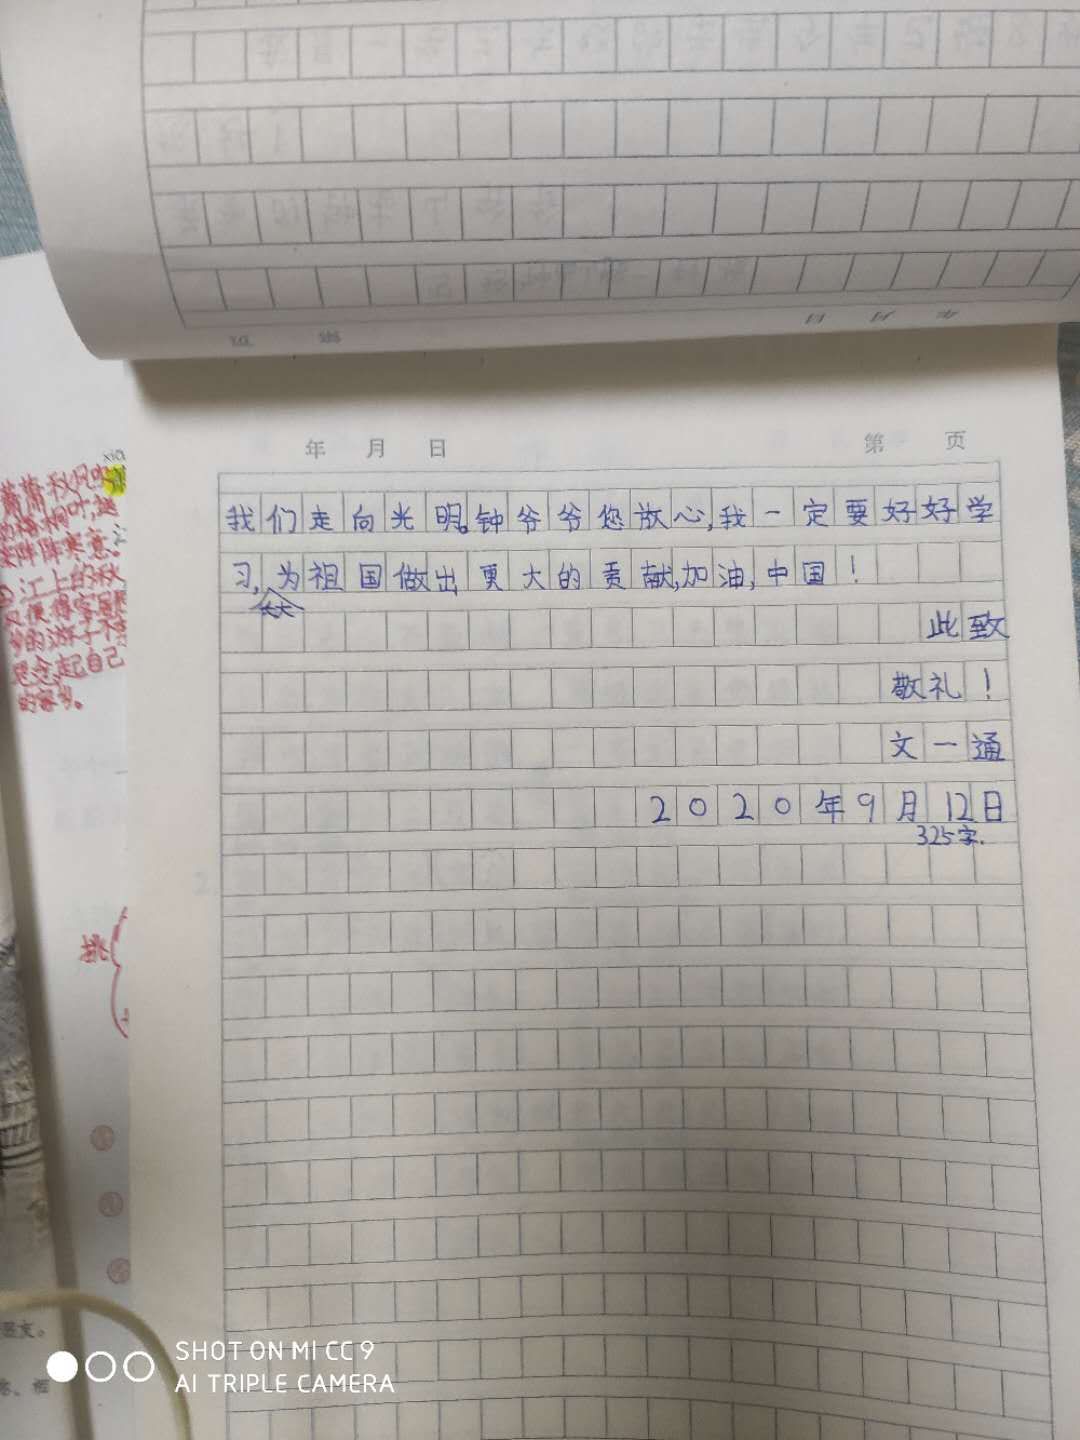 年 月 日 第 页
我们走向光明。钟爷爷您放心,我一定要好好学
习,长大为祖国做出更大的贡献,加油,中国!
此致
敬礼!
文一通
2020年9月12日
325字.
萧萧秋风吹
的梧桐叶,送
来阵阵寒意。
江上的秋
又便得客居
乡的游子不
思念起自己
的家乡。
挑
SHOT ON MI CC 9
AI TRIPLE CAMERA